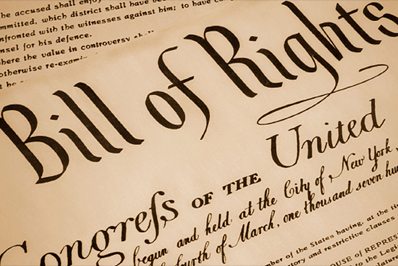 he accused shall enjoy
mitted, which district shall have be
nfronted with the witnesses against him; to have co
nsel for his defence.
here the value in controversy shall
otherwise re-exami
Bill of Rights
Congreſs OF THE United
begun and held at the City of New York,
fourth of March, one thousand seven hu
mber of the States having, at the ti
ory and restrictive clauses
HOUSE OF REPRES